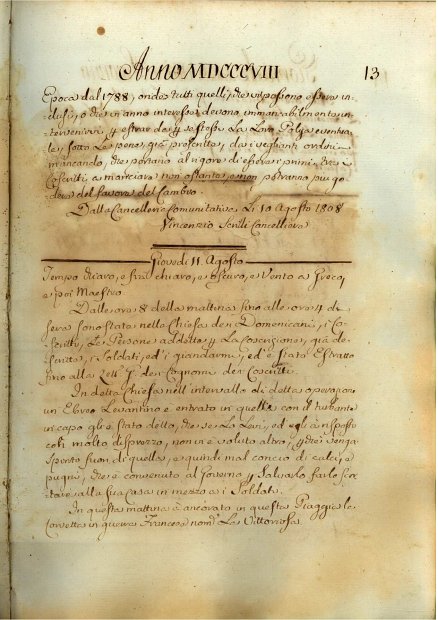 Anno MDCCCVIII 13
Epoca dal 1788, onde tutti quelli, che vi possono essere in-
clusi, o che in anno interesse devono immancabilmente in-
tervenirvi, estrarda se stessi La Loro Poliza eventua-
le, sotto Le pene già prescritte, da i veglianti ordini
mancando, che portano al rigore di essere i primi tra i
Coscritti, a marciare non ostante, e non potranno piu go-
dere del favore del Cambio.
Dalla Cancelleria Comunitativa Li 10 Agosto 1808
Vincenzio Senili Cancelliere
Giovedi 11. Agosto
Tempo chiaro, e fra chiaro, e oscuro, e Vento a Greco,
e poi Maestro.
Dalle ore 8 della mattina fino alle ore 4 di
sera sono state nella Chiesa de Domenicani, i Co-
scritti, Le Persone addette La Coscrizione, già de-
scritte, i Soldati, ed i giandarmi, ed è stato Estratto
fino alla Lett. de Cognomi de Coscritti.
In detta Chiesa nell'intervallo di detta operazione
un Ebreo Levantino è entrato in quella con il turbante
in capo gli è stato detto, che se Lo Levi, ed egli à risposto
con molto disprezzo, non vi è voluto altro, che venga
spento fuori di quella, e quindi mal concio di calci, e
pugni, che è convenuto al Governo Salvarlo farlo scor-
tare alla sua Casa in mezzo a i Soldati.
In questa mattina è ancorato in questa Piaggia la
Corvetta in guerra Francese nom. La Vittoriosa.